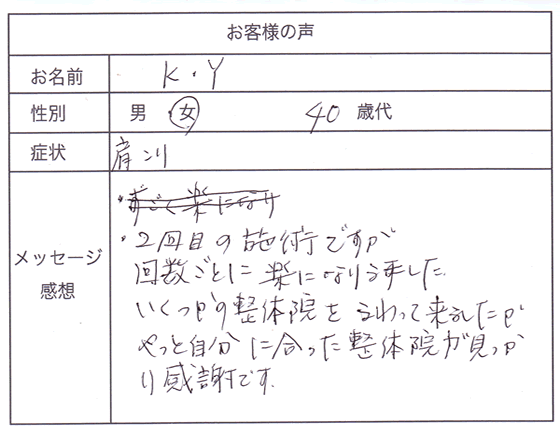 お客様の声
お名前 K・Y
性別 男・女 40 歳代
症状 肩コリ
メッセージ
感想
・すごく楽になり
・2回目の施術ですが
回数ごとに楽になりました。
いくつかの整体院をまわって来ましたが
やっと自分に合った整体院が見つか
り感謝です。